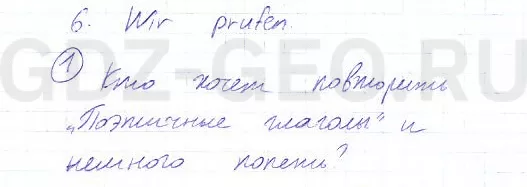 6. Wir prüfen.
① Кто хочет повторить
„Поэтичные глаголы" и
немного попеть?
GDZ-GEO.RU